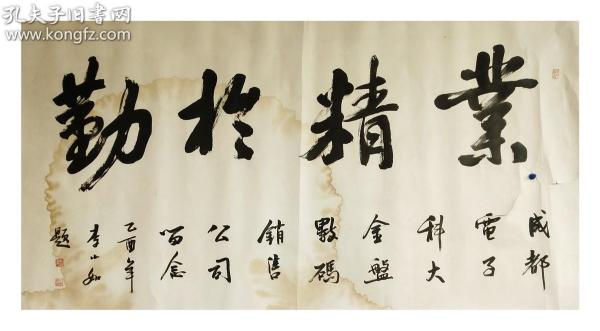 孔夫子旧书网
www.kongfz.com
業精於勤
成都
電子
科大
金盤
數碼
銷售
公司
留念
乙酉年
李小如
題